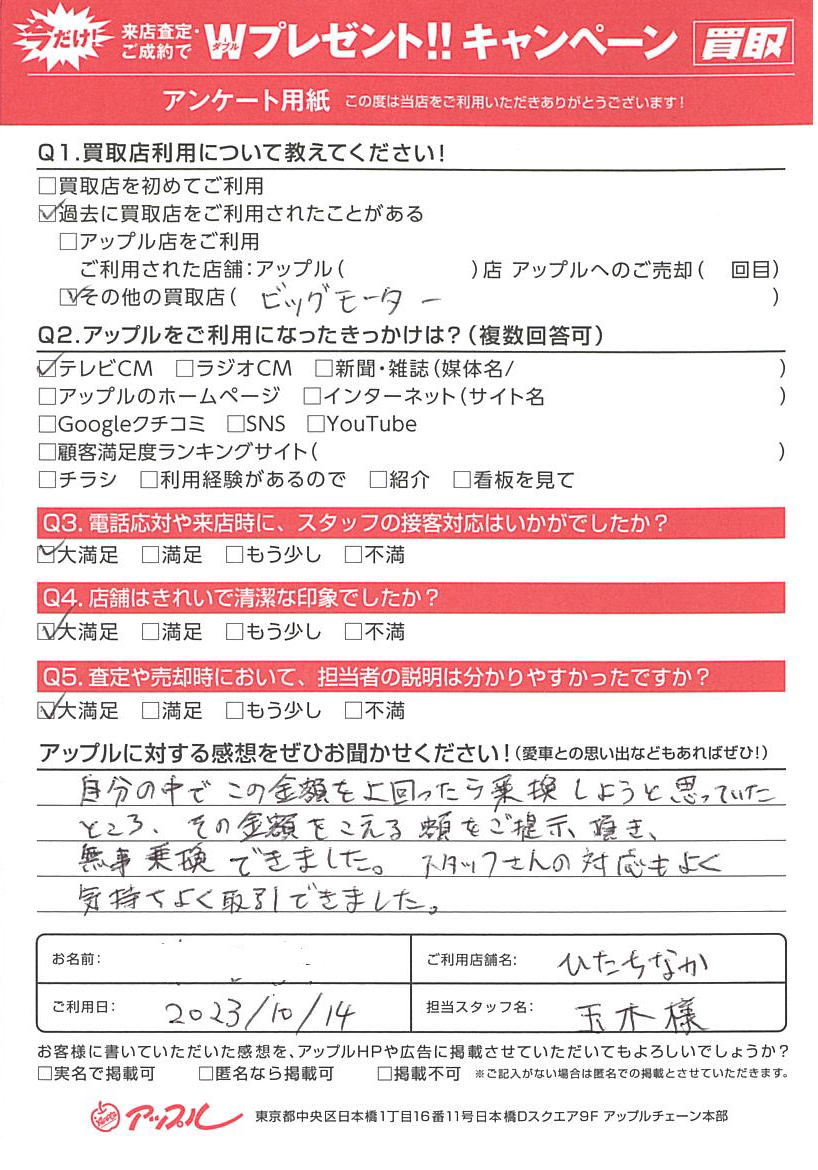 今だけ!
来店査定・
ご成約で
Wダブルプレゼント!!キャンペーン 買取
アンケート用紙 この度は当店をご利用いただきありがとうございます!
Q1.買取店利用について教えてください!
□買取店を初めてご利用
☑過去に買取店をご利用されたことがある
□アップル店をご利用
ご利用された店舗:アップル( )店 アップルへのご売却( 回目)
☑その他の買取店( ビッグモーター )
Q2.アップルをご利用になったきっかけは?(複数回答可)
☑テレビCM □ラジオCM □新聞・雑誌(媒体名/ )
□アップルのホームページ □インターネット(サイト名 )
□Googleクチコミ □SNS □YouTube
□顧客満足度ランキングサイト( )
□チラシ □利用経験があるので □紹介 □看板を見て
Q3.電話応対や来店時に、スタッフの接客対応はいかがでしたか?
☑大満足 □満足 □もう少し □不満
Q4.店舗はきれいで清潔な印象でしたか?
☑大満足 □満足 □もう少し □不満
Q5.査定や売却時において、担当者の説明は分かりやすかったですか?
☑大満足 □満足 □もう少し □不満
アップルに対する感想をぜひお聞かせください!(愛車との思い出などもあればぜひ!)
自分の中でこの金額を上回ったら乗換しようと思っていた
ところ、その金額をこえる額をご提示、頂き、
無事乗換できました。スタッフさんの対応もよく
気持ちよく取引できました。
お名前: ご利用店舗名: ひたちなか
ご利用日: 2023/10/14 担当スタッフ名: 玉木様
お客様に書いていただいた感想を、アップルHPや広告に掲載させていただいてもよろしいでしょうか?
□実名で掲載可 □匿名なら掲載可 □掲載不可 ※ご記入がない場合は匿名での掲載とさせていただきます。
アップル 東京都中央区日本橋1丁目16番11号日本橋Dスクエア9F アップルチェーン本部